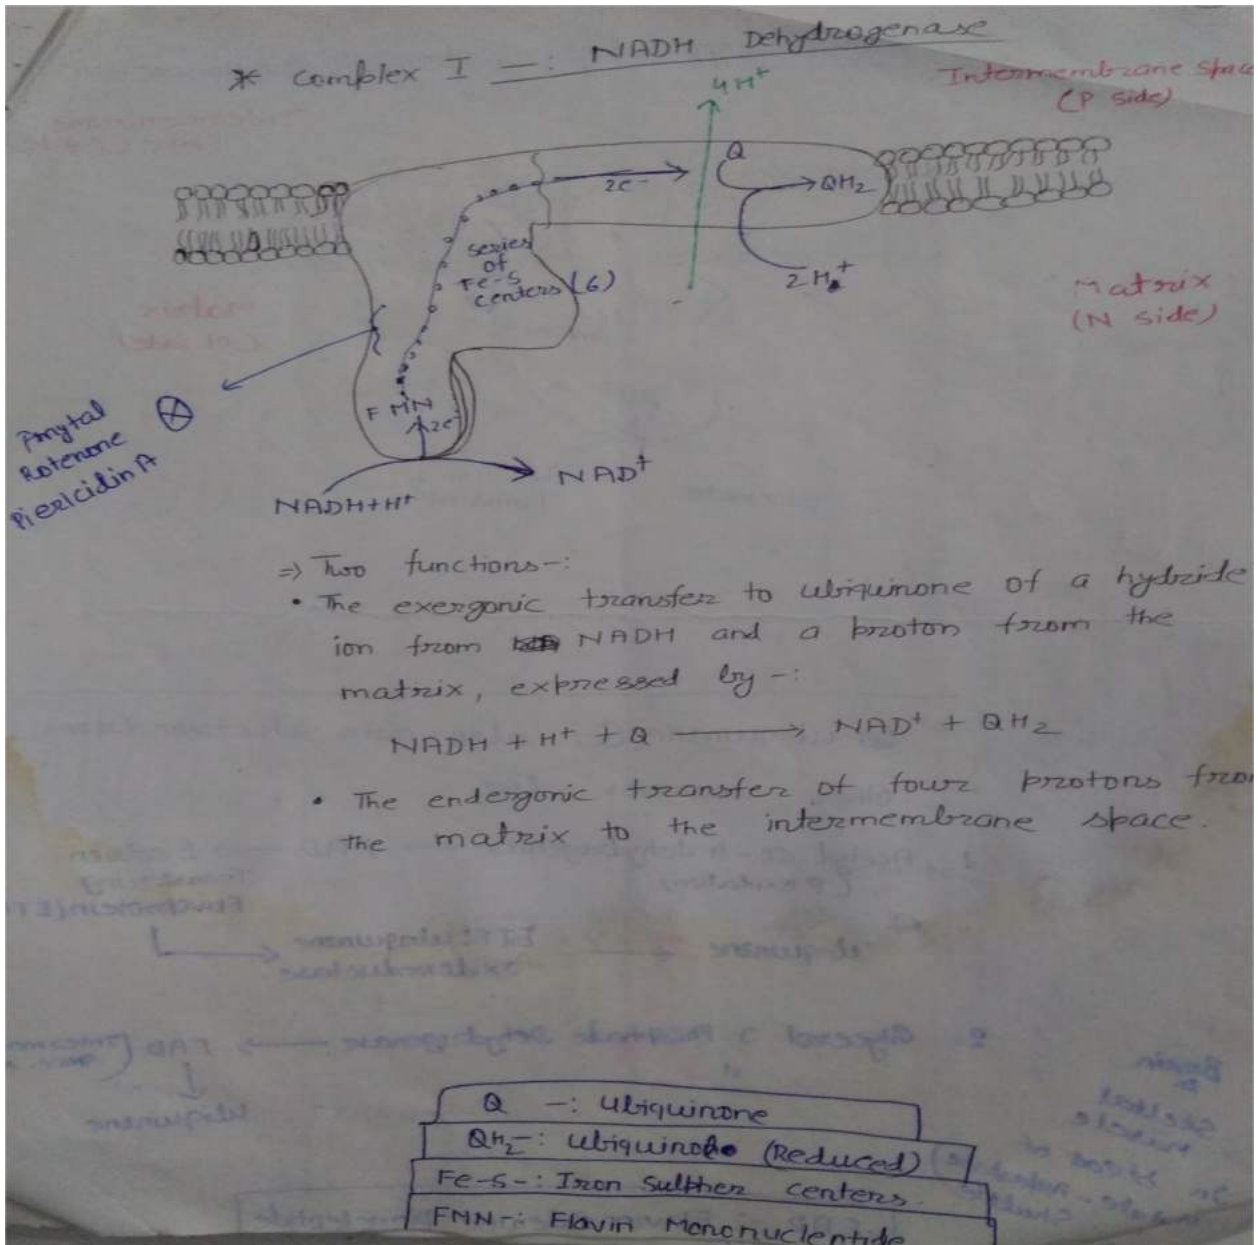 * Complex I -: NADH Dehydrogenase
4H+
Intermembrane Spac
(P side)
Q
2e-
QH2
series
of
Fe-S
centers (6)
2H+
Matrix
(N side)
FMN
2e-
Amytal
Rotenone
PierlcidinA
NADH+H+
NAD+
⇒ Two functions-:
• The exergonic transfer to ubiquinone of a hydride
ion from NADH and a proton from the
matrix, expressed by -:
NADH + H+ + Q → NAD+ + QH2
• The endergonic transfer of four protons fro
the matrix to the intermembrane space.
Q -: Ubiquinone
QH2-: Ubiquinol (Reduced)
Fe-S-: Iron Sulther centers.
FMN-: Flavin Mononucleotide